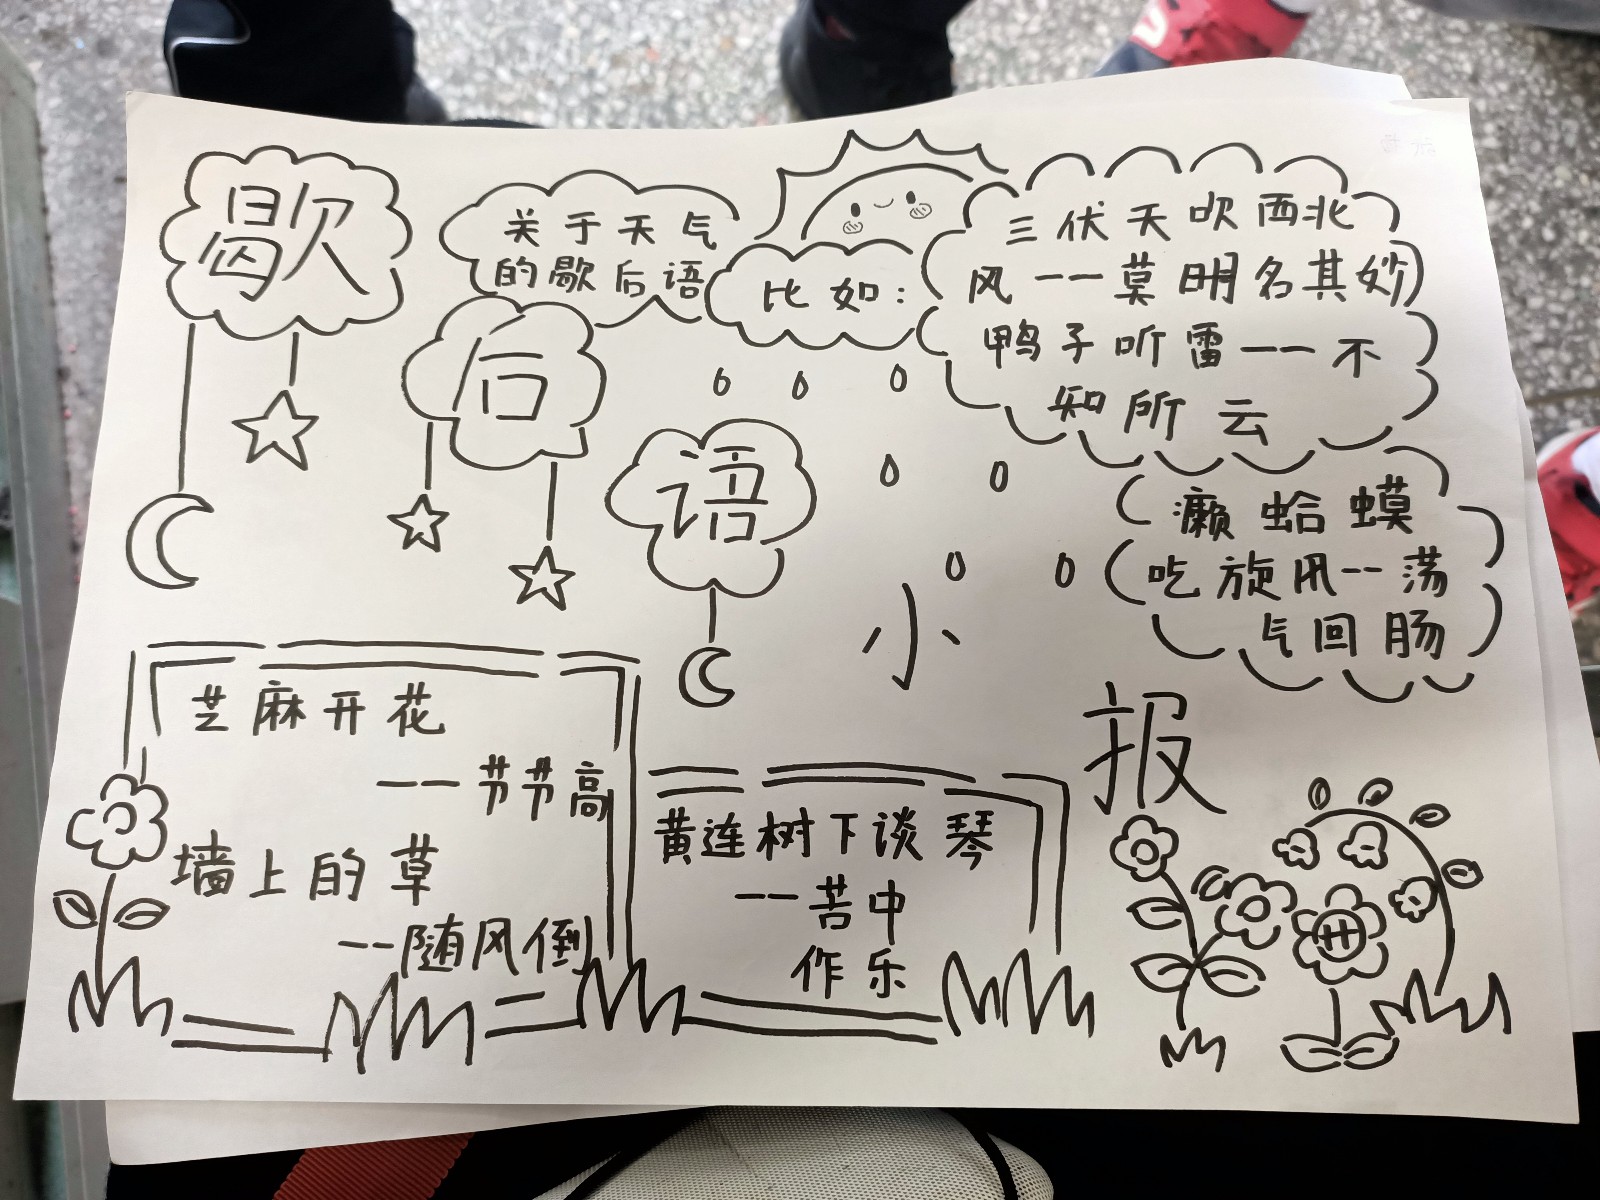 歇
后
语
小
报
关于天气
的歇后语
比如：
三伏天吹西北
风一一莫明名其妙
鸭子听雷一一不
知所云
濑蛤蟆
吃旋风一一荡
气回肠
芝麻开花
一一节节高
墙上的草
一一随风倒
黄连树下谈琴
一一苦中
作乐